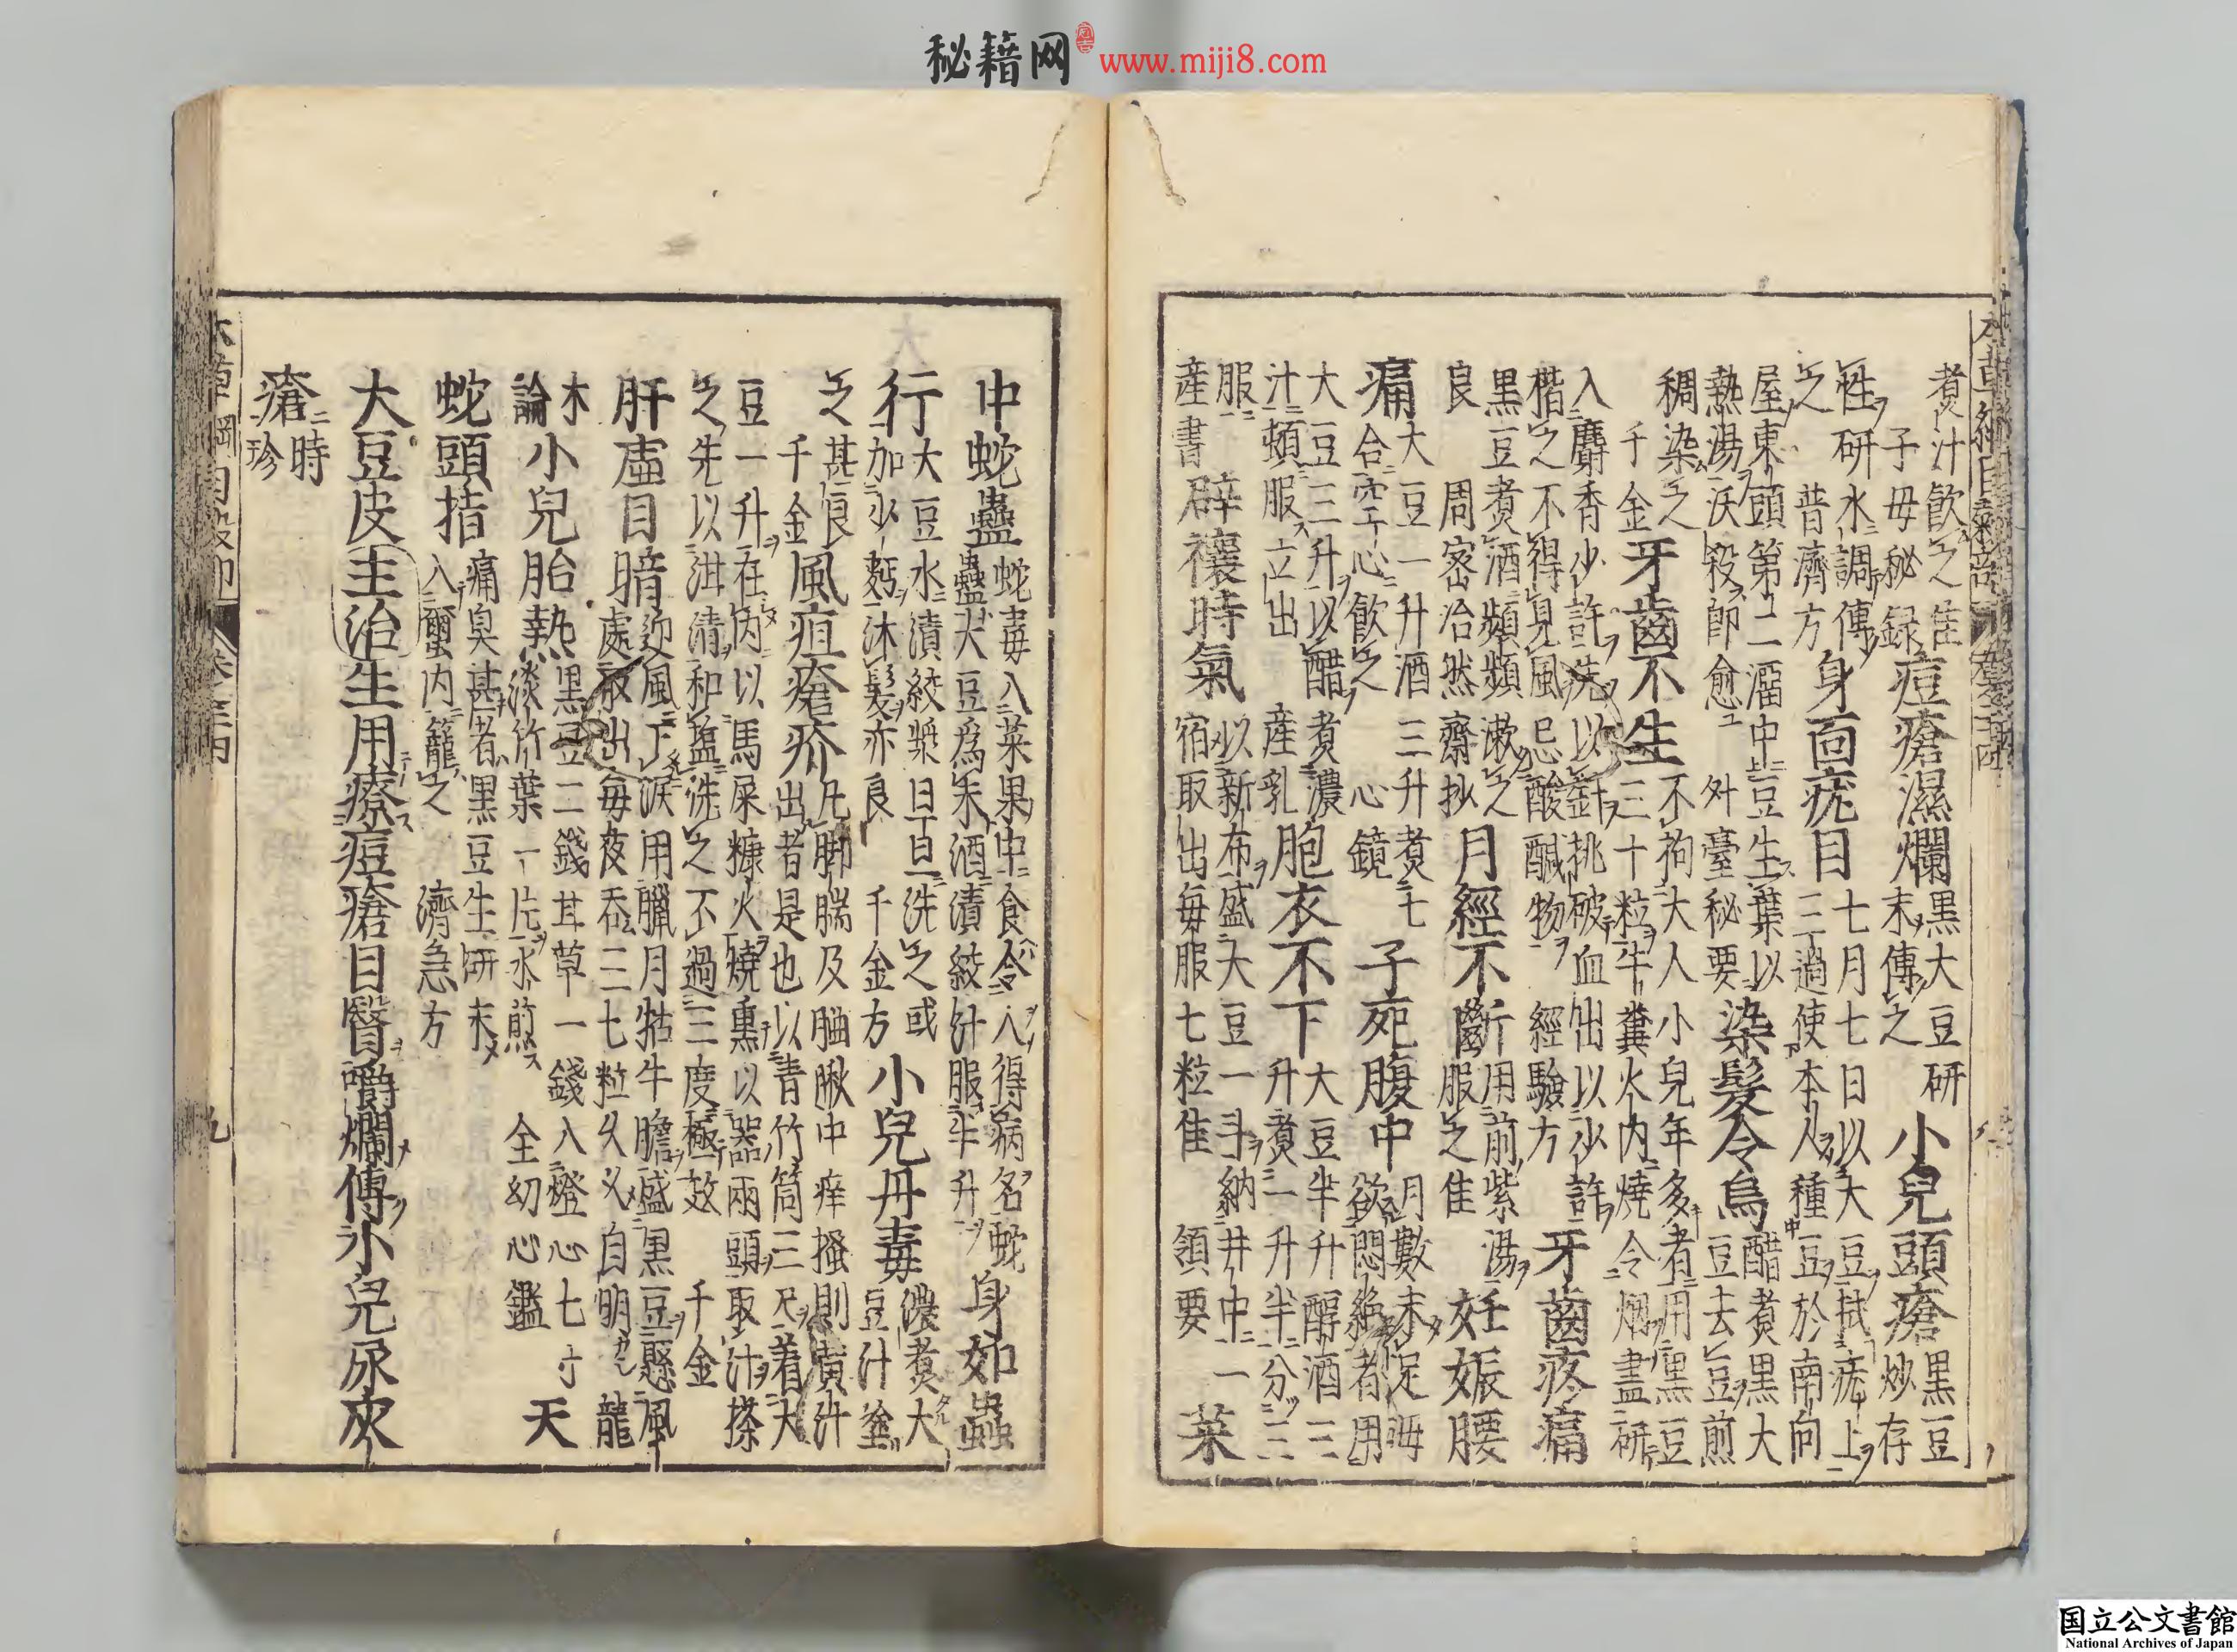 秘籍网 www.miji8.com
煮汁飲之佳
子母秘録
痘瘡濕爛
黒大豆研
末傅之
小兒頭瘡
黒豆
炒存
性研水調傅
之 普濟方
身面疣目
七月七日以大豆拭疣上
三過使本人種豆於南向
屋東頭第二溜中豆生葉以
熱湯沃殺即愈 外臺秘要
染髮令烏
醋煮黒大
豆去豆煎
稠染之
千金
牙齒不生
不拘大人小兒年多者用黒豆
三十粒牛糞火内燒令烟盡研
入麝香少許洗以針挑破血出以少許
楷之不得見風忌酸鹹物 經驗方
牙齒疼痛
黒豆煮酒頻頻漱之
良 周密浩然齋抄
月經不斷
用前紫湯
服之佳
妊娠腰
痛
大豆一升酒三升煮七
合空心飲之 心鏡
子死腹中
月數未足毋
欲悶絶者用
大豆三升以醋煮濃
汁頓服立出 産乳
胞衣不下
大豆半升醇酒三
升煮一升半分三
服
産書
辟禳時氣
以新布盛大豆一斗納井中一
宿取出毎服七粒佳 領要
菜
中蛇蠱
蛇毒入菜果中食令人得病名蛇
蠱大豆為末酒漬絞汁服半升
身如蟲
行
大豆水漬絞漿旦旦洗之或
加少麪沐髮亦良 千金方
小兒丹毒
濃煮大
豆汁塗
之甚良
千金
風疽瘡疥
凡脚腨及膕瞅中痒搔則黄汁
出者是也以青竹筒三尺着大
豆一升在内以馬屎糠火燒熏以器兩頭取汁搽
之先以泔清和鹽洗之不過三度極效 千金
肝虚目暗
迎風下淚用臘月牯牛膽盛黒豆懸風
處取出毎夜吞三七粒久久自明 龍
木
論
小兒胎熱
黒豆二錢甘草一錢入燈心七寸
淡竹葉一片水煎 全幼心鑑
天
蛇頭指
痛臭甚者黒豆生研末
入内籠之 濟急方
大豆皮主治生用療痘瘡目醫嚼爛傅小兒尿灰
瘡
時
珍
九
国立公文書館
National Archives of Japan